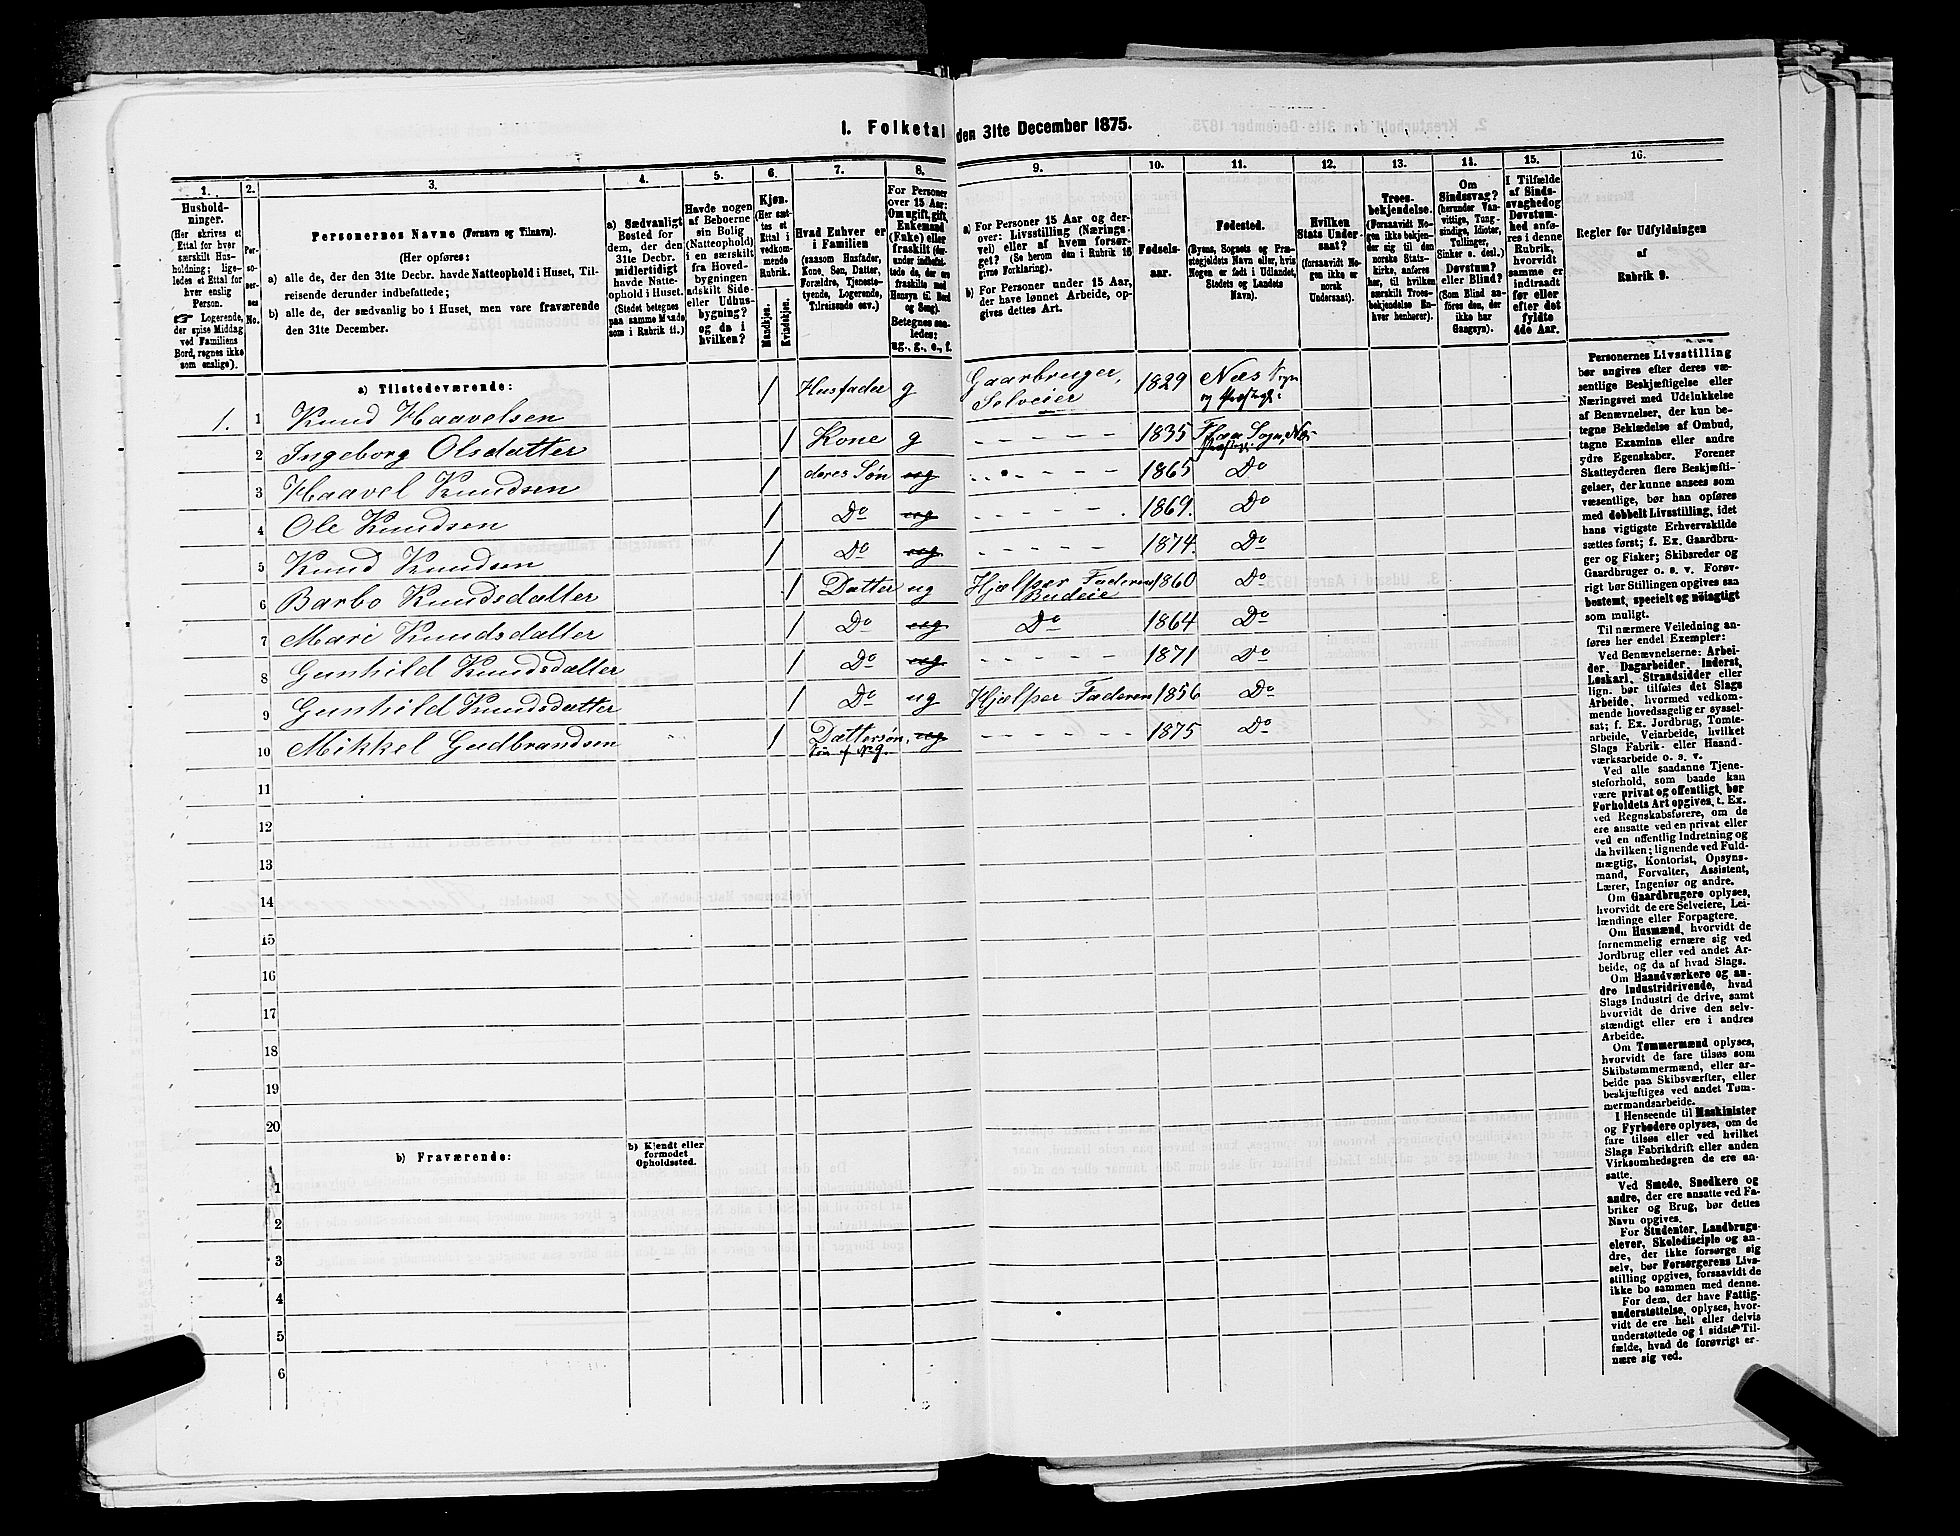 1. Folketal den 31te December 1875.
1. 2. 3. 4. 5. 6. 7. 8. 9. 10. 11. 12. 13. 14. 15. 16.
Husholdninger.
(Her skrives et
Ettal for hver
særskilt Husholdning;
ligeledes et Ettal for
hver enslig
Person.
☞ Logerende,
der spise Middag
ved Familiens
Bord, regnes ikke
som enslige).
Personernes No.
Personernes Navne (Fornavn og Tilnavn).
(Her opføres:
a) alle de, der den 31te Decbr. havde Natteophold i Huset, Tilreisende derunder indbefattede;
b) alle de, der sædvanlig bo i Huset, men vare fraværende
den 31te December.
a) Sædvanligt
Bosted for
dem, der den
31te Decbr.
midlertidigt
havde Natteophold i Huset.
(Stedet betegnes
paa samme Maade
som i Rubrik 11.)
Havde nogen
af Beboerne
sin Bolig
(Natteophold)
i en særskilt
fra Hovedbygningen
adskilt Side-
eller Udhusbygning?
og da i
hvilken?
Kjøn.
(Her sættes et
Ettal i
vedkommende
Rubrik.
Mandkjøn.
Kvindekjøn.
Hvad Enhver er
i Familien
(saasom Husfader,
Kone, Søn, Datter,
Forældre, Tjenestetyende, Logerende,
Tilreisende osv.)
For Personer
over 15 Aar:
Om ugift, gift,
Enkemand
(Enke) eller
fraskilt (derunder indbefattede de, der ere
fraskilte med
Hensyn til Bord
og Seng).
Betegnes saaledes:
ug., g., e., f.
a) For Personer 15 Aar og derover: Livsstilling (Næringsvei) eller af hvem forsørget? (Se herom den i Rubrik 16
givne Forklaring).
b) For Personer under 15 Aar,
der have lønnet Arbeide, opgives dettes Art.
Fødselsaar.
Fødested.
(Byens, Sognets og Præstegjeldets Navn eller, hvis
Nogen er født i Udlandet,
Stedets og Landets
Navn).
Hvilken
Stats Undersaat?
(forsaavidt Nogen ikke er
norsk
Undersaat).
Troesbekjendelse.
(Forsaavidt Nogen ikke bekjender sig til den
norske Statskirke, anføres
her, til hvilken
særskilt Troesbekjendelse Enhver henhører).
Om
Sindssvag?
(herunder Vanvittige, Tungsindige, Idioter,
Tullinger,
Sinker o. desl.)
Døvstum?
eller Blind?
(Som Blind anføres den, der
ikke har
Gangsyn).
I Tilfælde
af Sindssvaghed og
Døvstumhed anføres i denne
Rubrik,
hvorvidt
samme er
indtraadt
før eller
efter det
fyldte
4de Aar.
Regler for Udfyldningen
af
Rubrik 9.
a) Tilstedeværende:
1. 1 Knud Haavelsen 1 Husfader g Gaarbruger, Selveier 1829 Næs Sogn og Præstegj:
2 Ingeborg Olsdatter 1 Kone g - - - - - 1835 Flaa Sogn, Næs
3 Haavel Knudsen 1 deres Søn ug - - - - - 1865 Do
4 Ole Knudsen 1 Do ug - - - - - 1869. Do
5 Knud Knudsen 1 Do ug - - - - - 1874. Do
6 Barbo Knudsdatter 1 Datter ug Hjælper Faderen Budeie 1860 Do
7 Mari Knudsdatter 1 Do ug Do 1864 Do
8 Gunhild Knudsdatter 1 Do ug - - - - - 1871 Do
9 Gunhild Knudsdatter 1 Do ug Hjælper Faderen 1856 Do
10 Mikkel Gudbrandsen 1 Dattersøn, Søn af No 9. ug - - - - - 1875 Do
11
12
13
14
15
16
17
18
19
20
b) Fraværende:
b) Kjendt eller
formodet
Opholdssted.
1
2
3
4
5
6
Personernes Livsstilling
bør angives efter deres væsentlige Beskjæftigelse eller
Næringsvei med Udelukkelse
af Benævnelser, der kun betegne Beklædelse af Ombud,
tagne Examina eller andre
ydre Egenskaber. Forener
Skatteyderen flere Beskjæftigelser, der kunne ansees som
væsentlige, bør han opføres
med dobbelt Livsstilling, idet
hans vigtigste Erhvervskilde
sættes først; f. Ex. Gaardbruger og Fisker; Skibsreder og
Gaardbruger o. s. v. Forøvrigt bør Stillingen opgives saa
bestemt, specielt og nøiagtigt
som muligt.
Til nærmere Veiledning anføres her endel Exempler:
Ved Benævnelserne: Arbeider, Dagarbeider, Inderst,
Løskarl, Strandsidder eller
lign. bør tilføies det Slags
Arbeide, hvormed vedkommende hovedsagelig er sysselsat; f. Ex. Jordbrug, Tomtearbeide, Veiarbeide, hvilket
Slags Fabrik- eller Haandværksarbeide o. s. v.
Ved alle saadanne Tjenesteforhold, som baade kan
være privat og offentligt, bør
Forholdets Art opgives, t. Ex.
ved Regnskabsførere, om de
ere ansatte ved en privat eller
ved en offentlig Indretning og
da hvilken; lignende ved Fuldmægtig, Kontorist, Opsynsmand, Forvalter, Assistent,
Lærer, Ingeniør og andre.
Om Gaardbrugere oplyses,
hvorvidt de ere Selveiere, Leilændinge eller Forpagtere.
Om Husmænd, hvorvidt de
fornemmelig ernære sig ved
Jordbrug eller ved andet Arbeide, og da af hvad Slags.
Om Haandværkere og andre Industridrivende, hvad
Slags Industri de drive, samt
hvorvidt de drive den selvstændigt eller ere i andres
Arbeide.
Om Tømmermænd oplyses,
hvorvidt de fare tilsøs som
Skibstømmermænd, eller arbeide paa Skibsværfter, eller
beskjæftiges ved andet Tømmermandsarbeide.
I Henseende til Maskinister
og Fyrbødere oplyses, om de
fare tilsøs eller ved hvilket
Slags Fabrikdrift eller anden
Virksomhedsgren de ere ansatte.
Ved Smede, Snedkere og
andre, der ere ansatte ved Fabriker og Brug, bør dettes
Navn opgives.
For Studenter, Landbrugselever, Skoledisciple og andre, der ikke forsørge sig
selv, bør Forsørgerens Livsstilling opgives, forsaavidt de
ikke bo sammen med denne.
For dem, der have Fattigunderstøttelse, oplyses, hvorvidt de ere helt eller delvis
understøttede og i sidste Tilfælde, hvad de forøvrigt ernære sig ved.